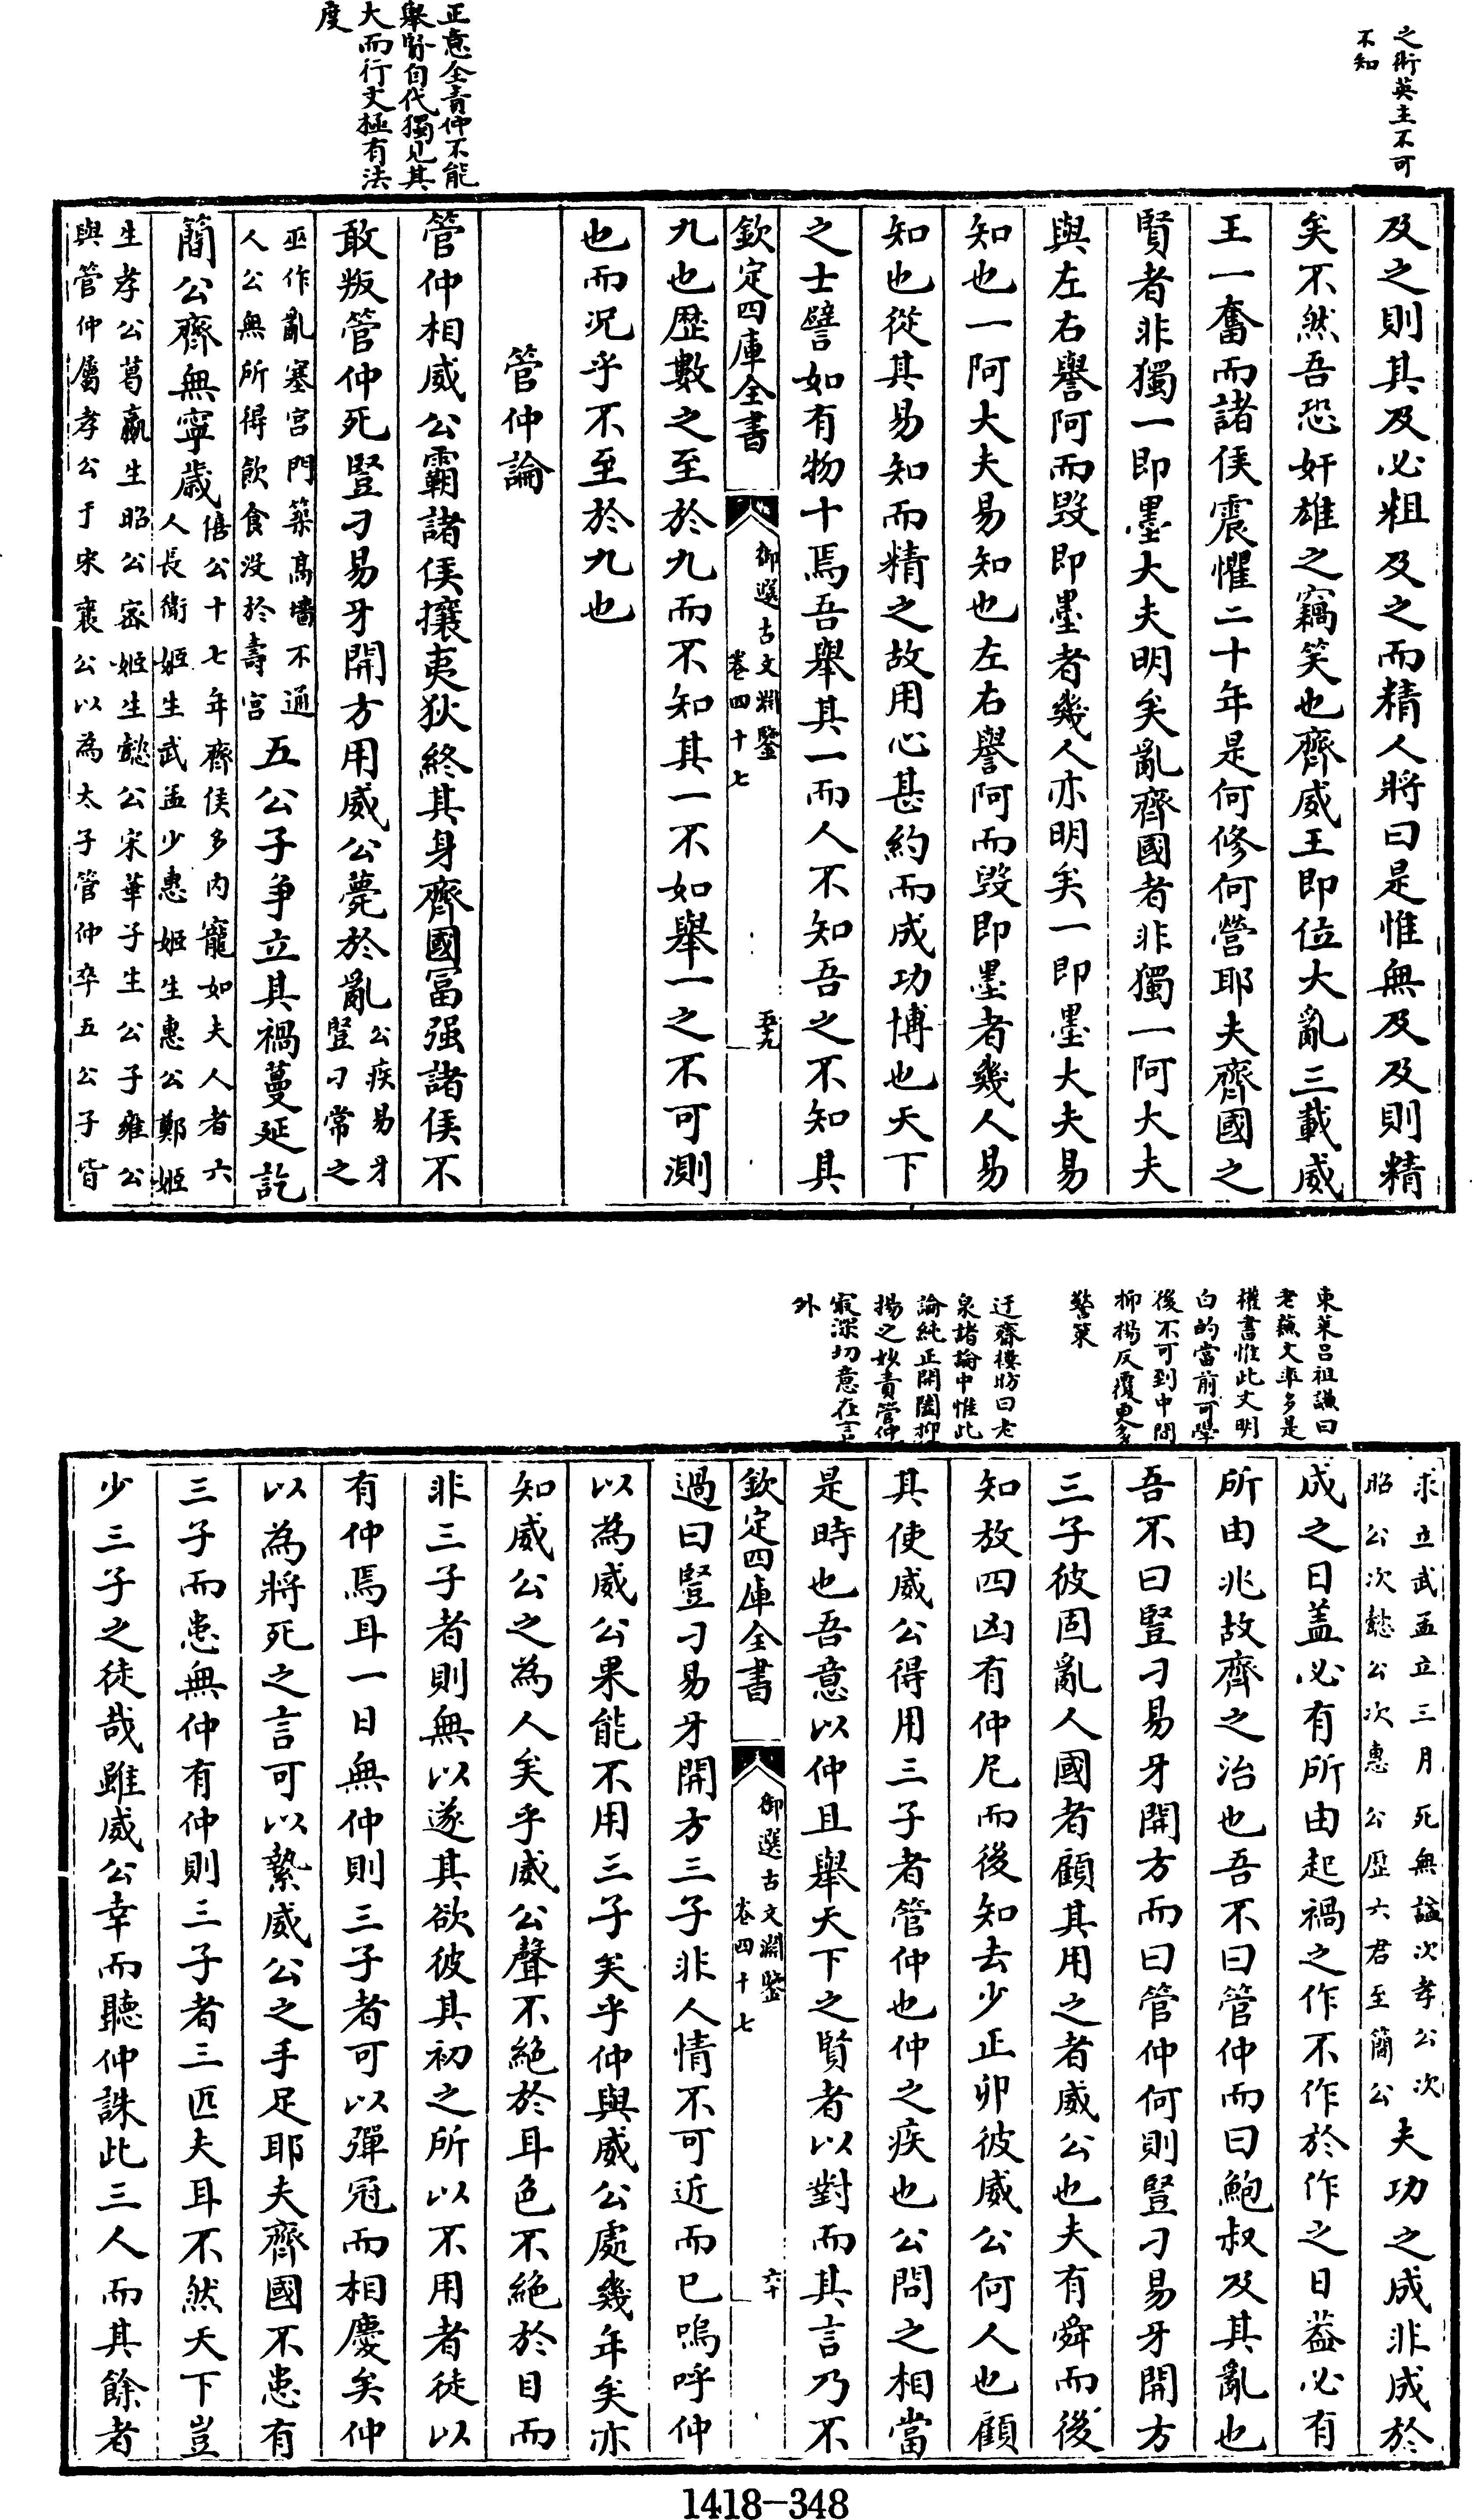 之術英主不可
不知
正意全責仲不能
舉賢自代獨見其
大而行文極有法
度
及之則其及必粗及之而精人將曰是惟無及及則精
矣不然吾恐奸雄之竊笑也齊威王即位大亂三載威
王一奮而諸侯震懼二十年是何修何營耶夫齊國之
賢者非獨一即墨大夫明矣亂齊國者非獨一阿大夫
與左右譽阿而毀即墨者幾人亦明矣一即墨大夫易
知也一阿大夫易知也左右譽阿而毀即墨者幾人易
知也從其易知而精之故用心甚約而成功博也天下
之士譬如有物十焉吾舉其一而人不知吾之不知其
欽定四庫全書
御選古文淵鑒
卷四十七
五九
九也歷數之至於九而不知其一不如舉一之不可測
也而況乎不至於九也
管仲論
管仲相威公霸諸侯攘夷狄終其身齊國富强諸侯不
敢叛管仲死豎刁易牙開方用威公薨於亂
公疾易牙
豎刁常之
巫作亂塞宫門築高墻不通
人公無所得飲食没於壽宫
五公子争立其禍蔓延訖
簡公齊無寧歲
僖公十七年齊侯多内寵如夫人者六
人長衛姬生武孟少惠姬生惠公鄭姬
生孝公葛嬴生昭公密姬生懿公宋華子生公子雍公
與管仲屬孝公于宋襄公以為太子管仲卒五公子皆
東萊吕祖謙曰
老蘇文率多是
權書惟此文明
白的當前可學
後不可到中間
抑揚反覆更多
警策
迂齋樓昉曰老
泉諸論中惟此
論純正開闔抑
揚之妙責管仲
㝡深切意在言
外
求立武孟立三月死無諡次孝公次
昭公次懿公次惠公歷六君至簡公
夫功之成非成於
成之日盖必有所由起禍之作不作於作之日益必有
所由兆故齊之治也吾不曰管仲而曰鮑叔及其亂也
吾不曰豎刁易牙開方而曰管仲何則豎刁易牙開方
三子彼固亂人國者顧其用之者威公也夫有舜而後
知放四凶有仲尼而後知去少正卯彼威公何人也顧
其使威公得用三子者管仲也仲之疾也公問之相當
是時也吾意以仲且舉天下之賢者以對而其言乃不
欽定四庫全書
御選古文淵鑒
卷四十七
六十
過曰豎刁易牙開方三子非人情不可近而已嗚呼仲
以為威公果能不用三子矣乎仲與威公處幾年矣亦
知威公之為人矣乎威公聲不絕於耳色不絕於目而
非三子者則無以遂其欲彼其初之所以不用者徒以
有仲焉耳一日無仲則三子者可以彈冠而相慶矣仲
以為將死之言可以縶威公之手足耶夫齊國不患有
三子而患無仲有仲則三子者三匹夫耳不然天下豈
少三子之徒哉雖威公幸而聽仲誅此三人而其餘者
1418-348